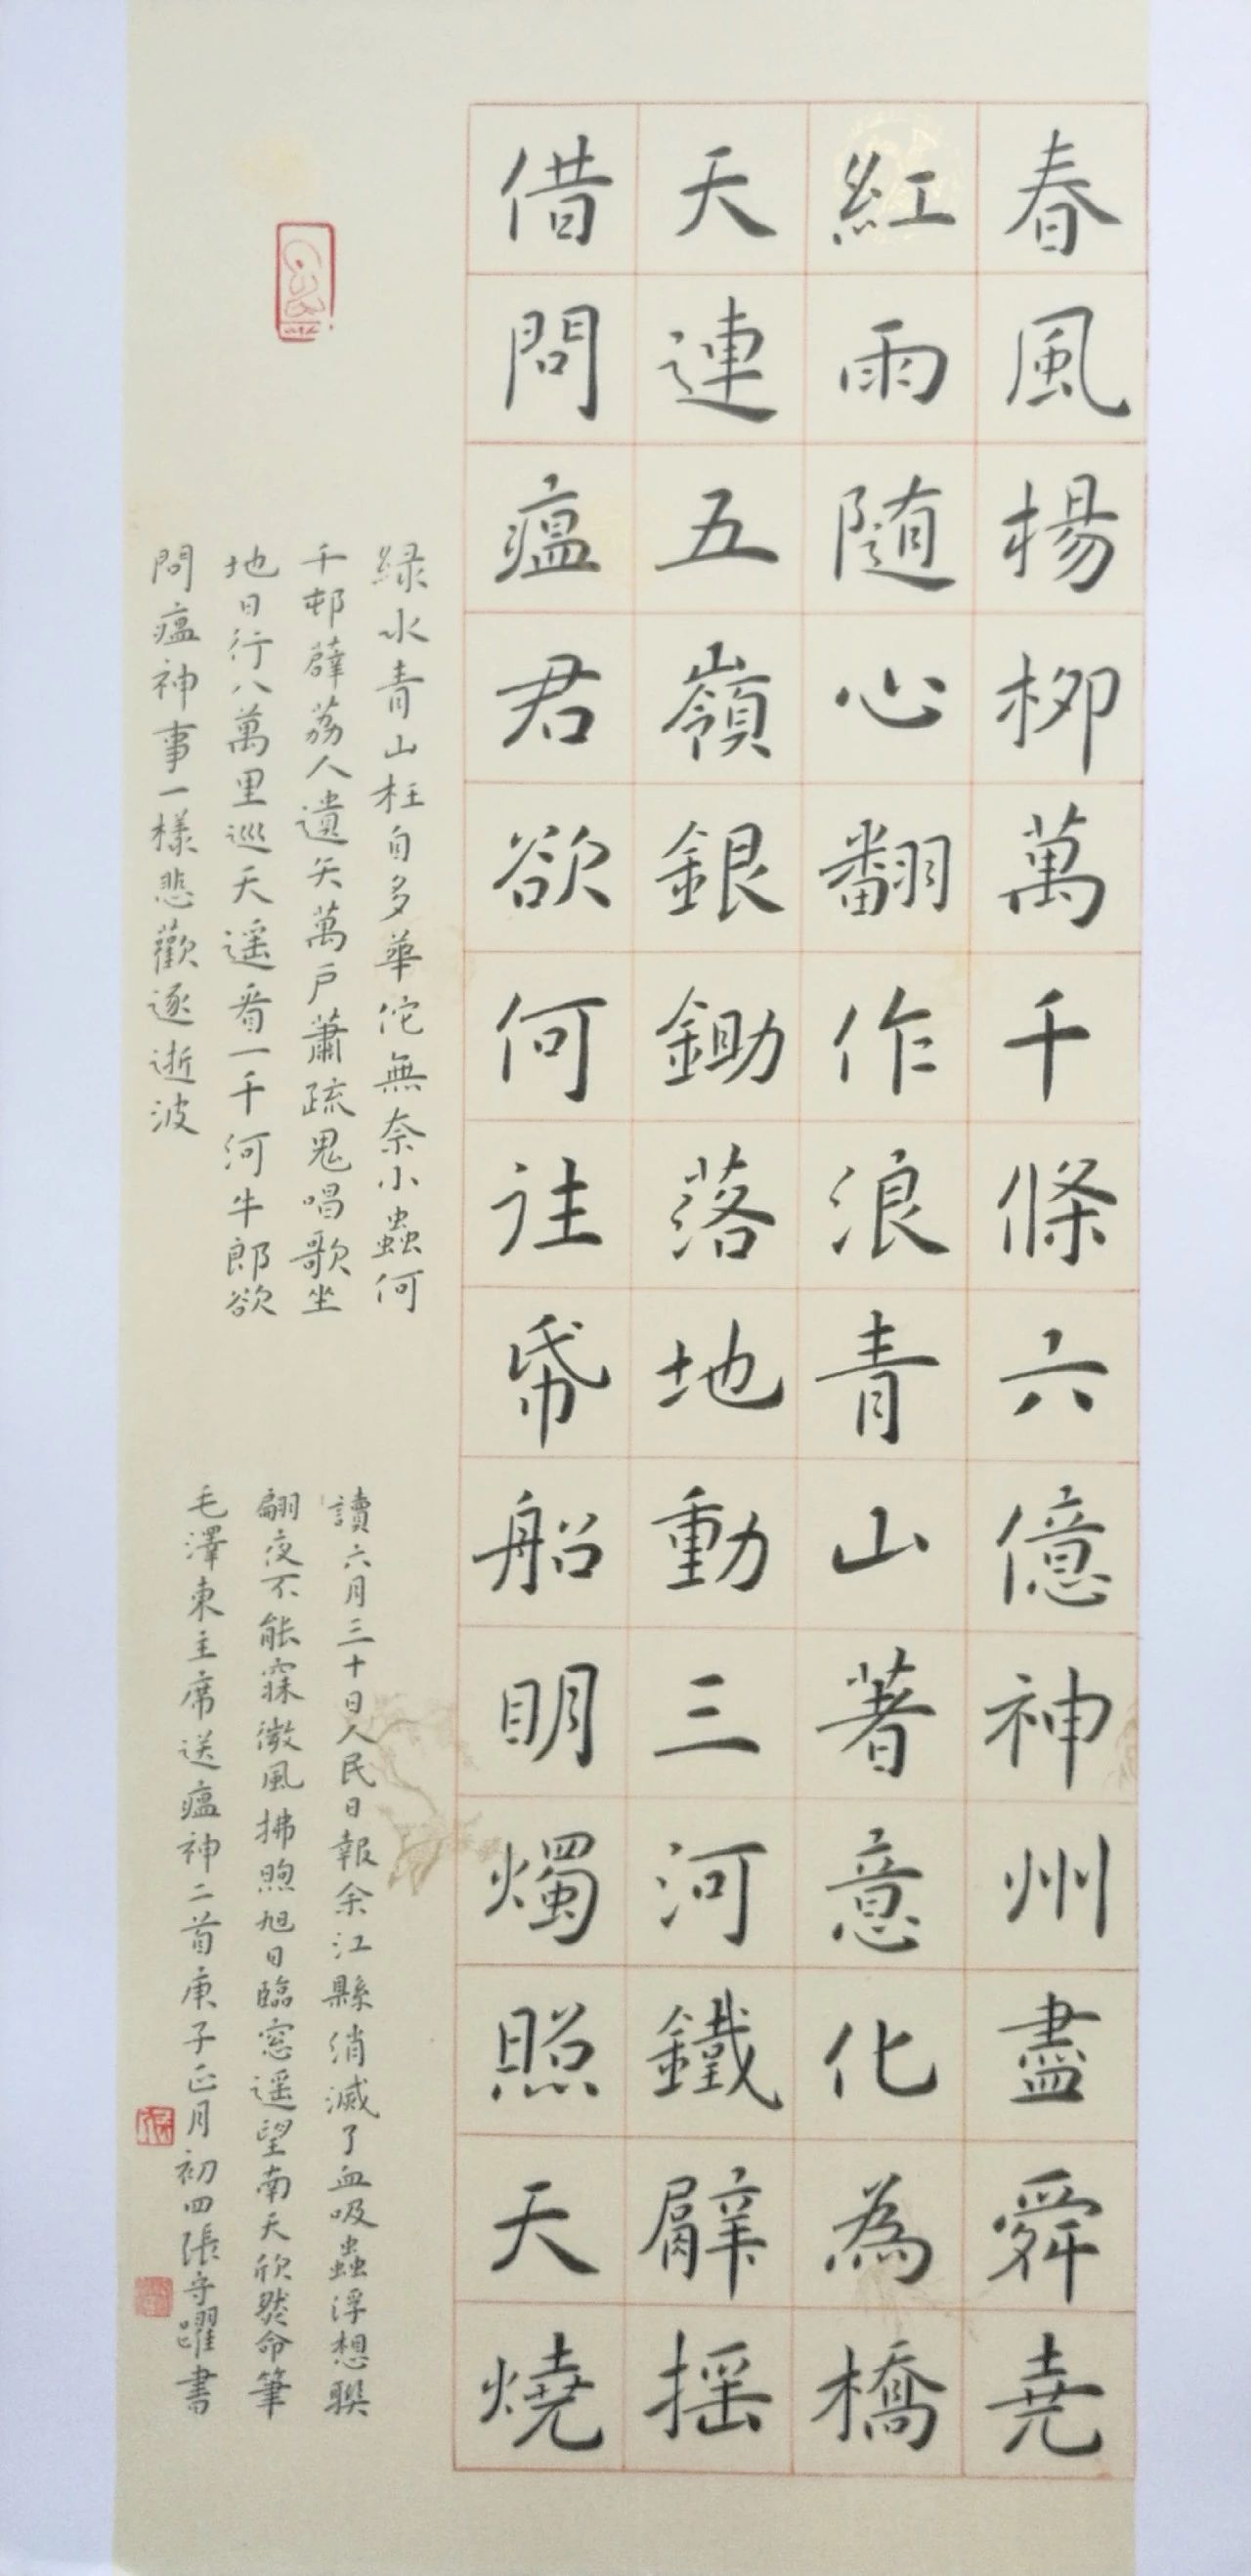 春風楊栁萬千條六億神州盡舜尭
紅雨隨心翻作浪青山著意化為橋
天連五嶺銀鋤落地動三河鐵臂摇
借問瘟君欲何往紙船明燭照天燒
緑水青山枉自多華佗無奈小蟲何
千邨薜荔人遺矢萬户蕭疏鬼唱歌坐
地日行八萬里巡天遥看一千河牛郎欲
問瘟神事一樣悲歡逐逝波
讀六月三十日人民日報余江縣消滅了血吸蟲浮想聯
翩夜不能寐微風拂煦旭日臨窓遥望南天欣然命筆
毛澤東主席送瘟神二首庚子正月初四張守躍書